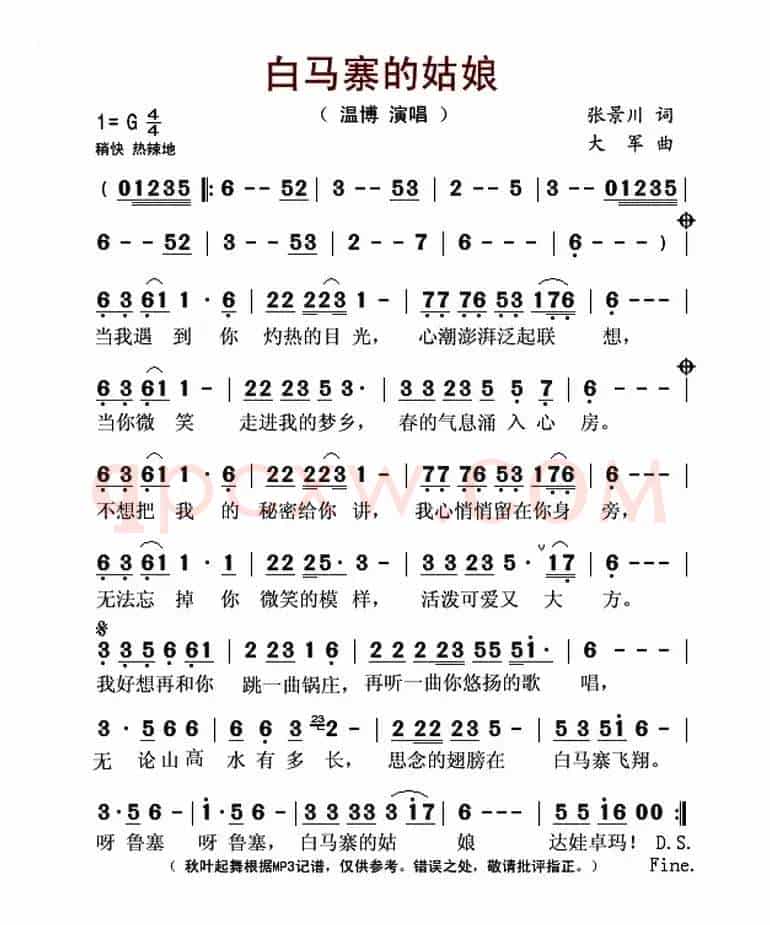 白马寨的姑娘
（ 温博 演唱 ）
张景川 词
1= G 4/4
大 军 曲
稍快 热辣地
( 01235 ‖: 6 - - 52 | 3 - - 53 | 2 - - 5 | 3 - - 01235 |
6 - - 52 | 3 - - 53 | 2 - - 7 | 6 - - - | 6 - - - ) |
6 3 61 1 · 6 | 22 223 1 - | 77 76 53 176 | 6 - - - |
当我遇 到 你 灼热的目 光， 心潮澎湃泛起联 想，
6 3 61 1 - | 22 235 53 · | 33 23 5 5 7 | 6 - - - |
当你微 笑 走进我的梦乡， 春的气息涌 入 心 房。
6 3 61 1 · 6 | 22 223 1 - | 77 76 53 176 | 6 - - - |
不想把 我 的 秘密给你 讲， 我心悄悄留在你身 旁，
6 3 61 1 · 1 | 22 25· 3 - | 33 23 5 · 17 | 6 - - - |
无法忘 掉 你 微笑的模 样， 活泼可爱又 大 方。
3 35 6 61 | 2 231 6 | 2 2 2 23 55 51· | 6 - - - |
我好想再和你 跳一曲锅庄，再听一曲你悠扬的歌 唱，
3 · 5 6 6 | 6 6 3 23 2 - | 2 22 23 5 - | 53 51 6 - |
无 论山高 水有多 长， 思念的翅膀在 白马寨飞翔。
3 · 5 6 - | 1 · 5 6 - | 3 3 33 3 17 | 6 - - - | 5 5 16 00 :‖
呀 鲁塞 呀 鲁塞， 白马寨的姑 娘 达娃卓玛！ D.S.
（ 秋叶起舞根据MP3记谱，仅供参考。错误之处，敬请批评指正。） Fine.
qpcxw.COM